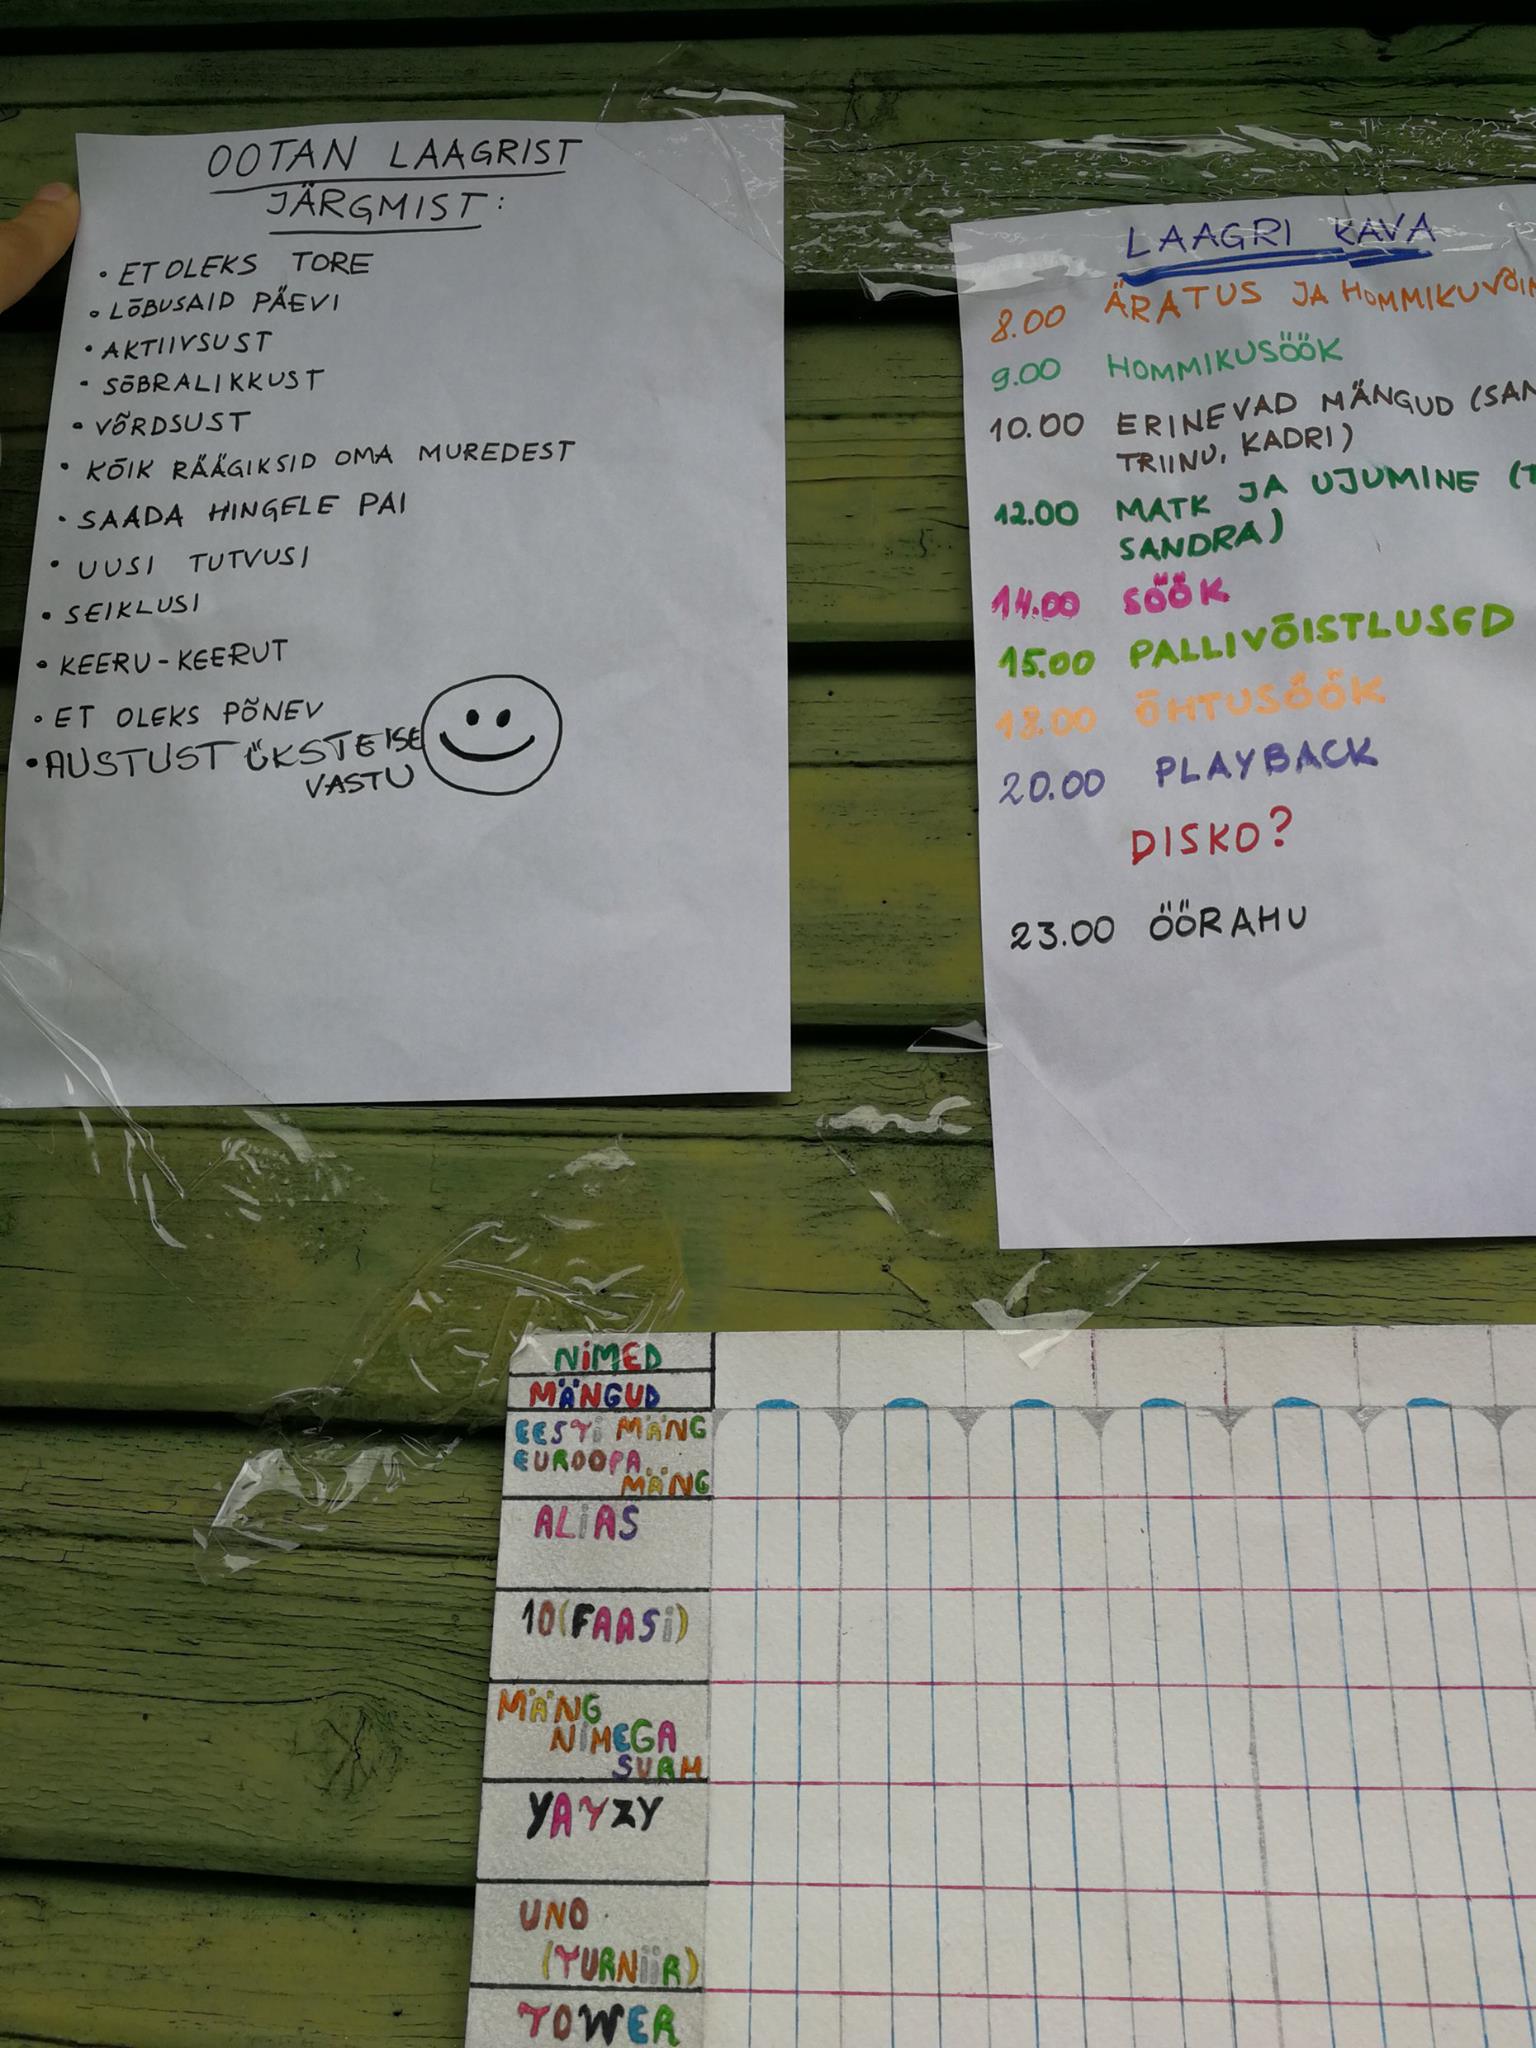 OOTAN LAAGRIST
JÄRGMIST:
• ET OLEKS TORE
• LÕBUSAID PÄEVI
• AKTIIVSUST
• SÕBRALIKKUST
• VÕRDSUST
• KÕIK RÄÄGIKSID OMA MUREDEST
• SAADA HINGELE PAI
• UUSI TUTVUSI
• SEIKLUSI
• KEERU-KEERUT
• ET OLEKS PÕNEV
• AUSTUST ÜKSTEISE
VASTU
LAAGRI KAVA
8.00 ÄRATUS JA HOMMIKUVÕIM
9.00 HOMMIKUSÖÖK
10.00 ERINEVAD MÄNGUD (SAN
TRIINU, KADRI)
12.00 MATK JA UJUMINE (T
SANDRA)
14.00 SÖÖK
15.00 PALLIVÕISTLUSED
18.00 ÕHTUSÖÖK
20.00 PLAYBACK
DISKO?
23.00 ÖÖRAHU
NIMED
MÄNGUD
EESTI MÄNG
EUROOPA
MÄNG
ALIAS
10(FAASI)
MÄNG
NIMEGA
SURM
YAYZY
UNO
(TURNIIR)
TOWER